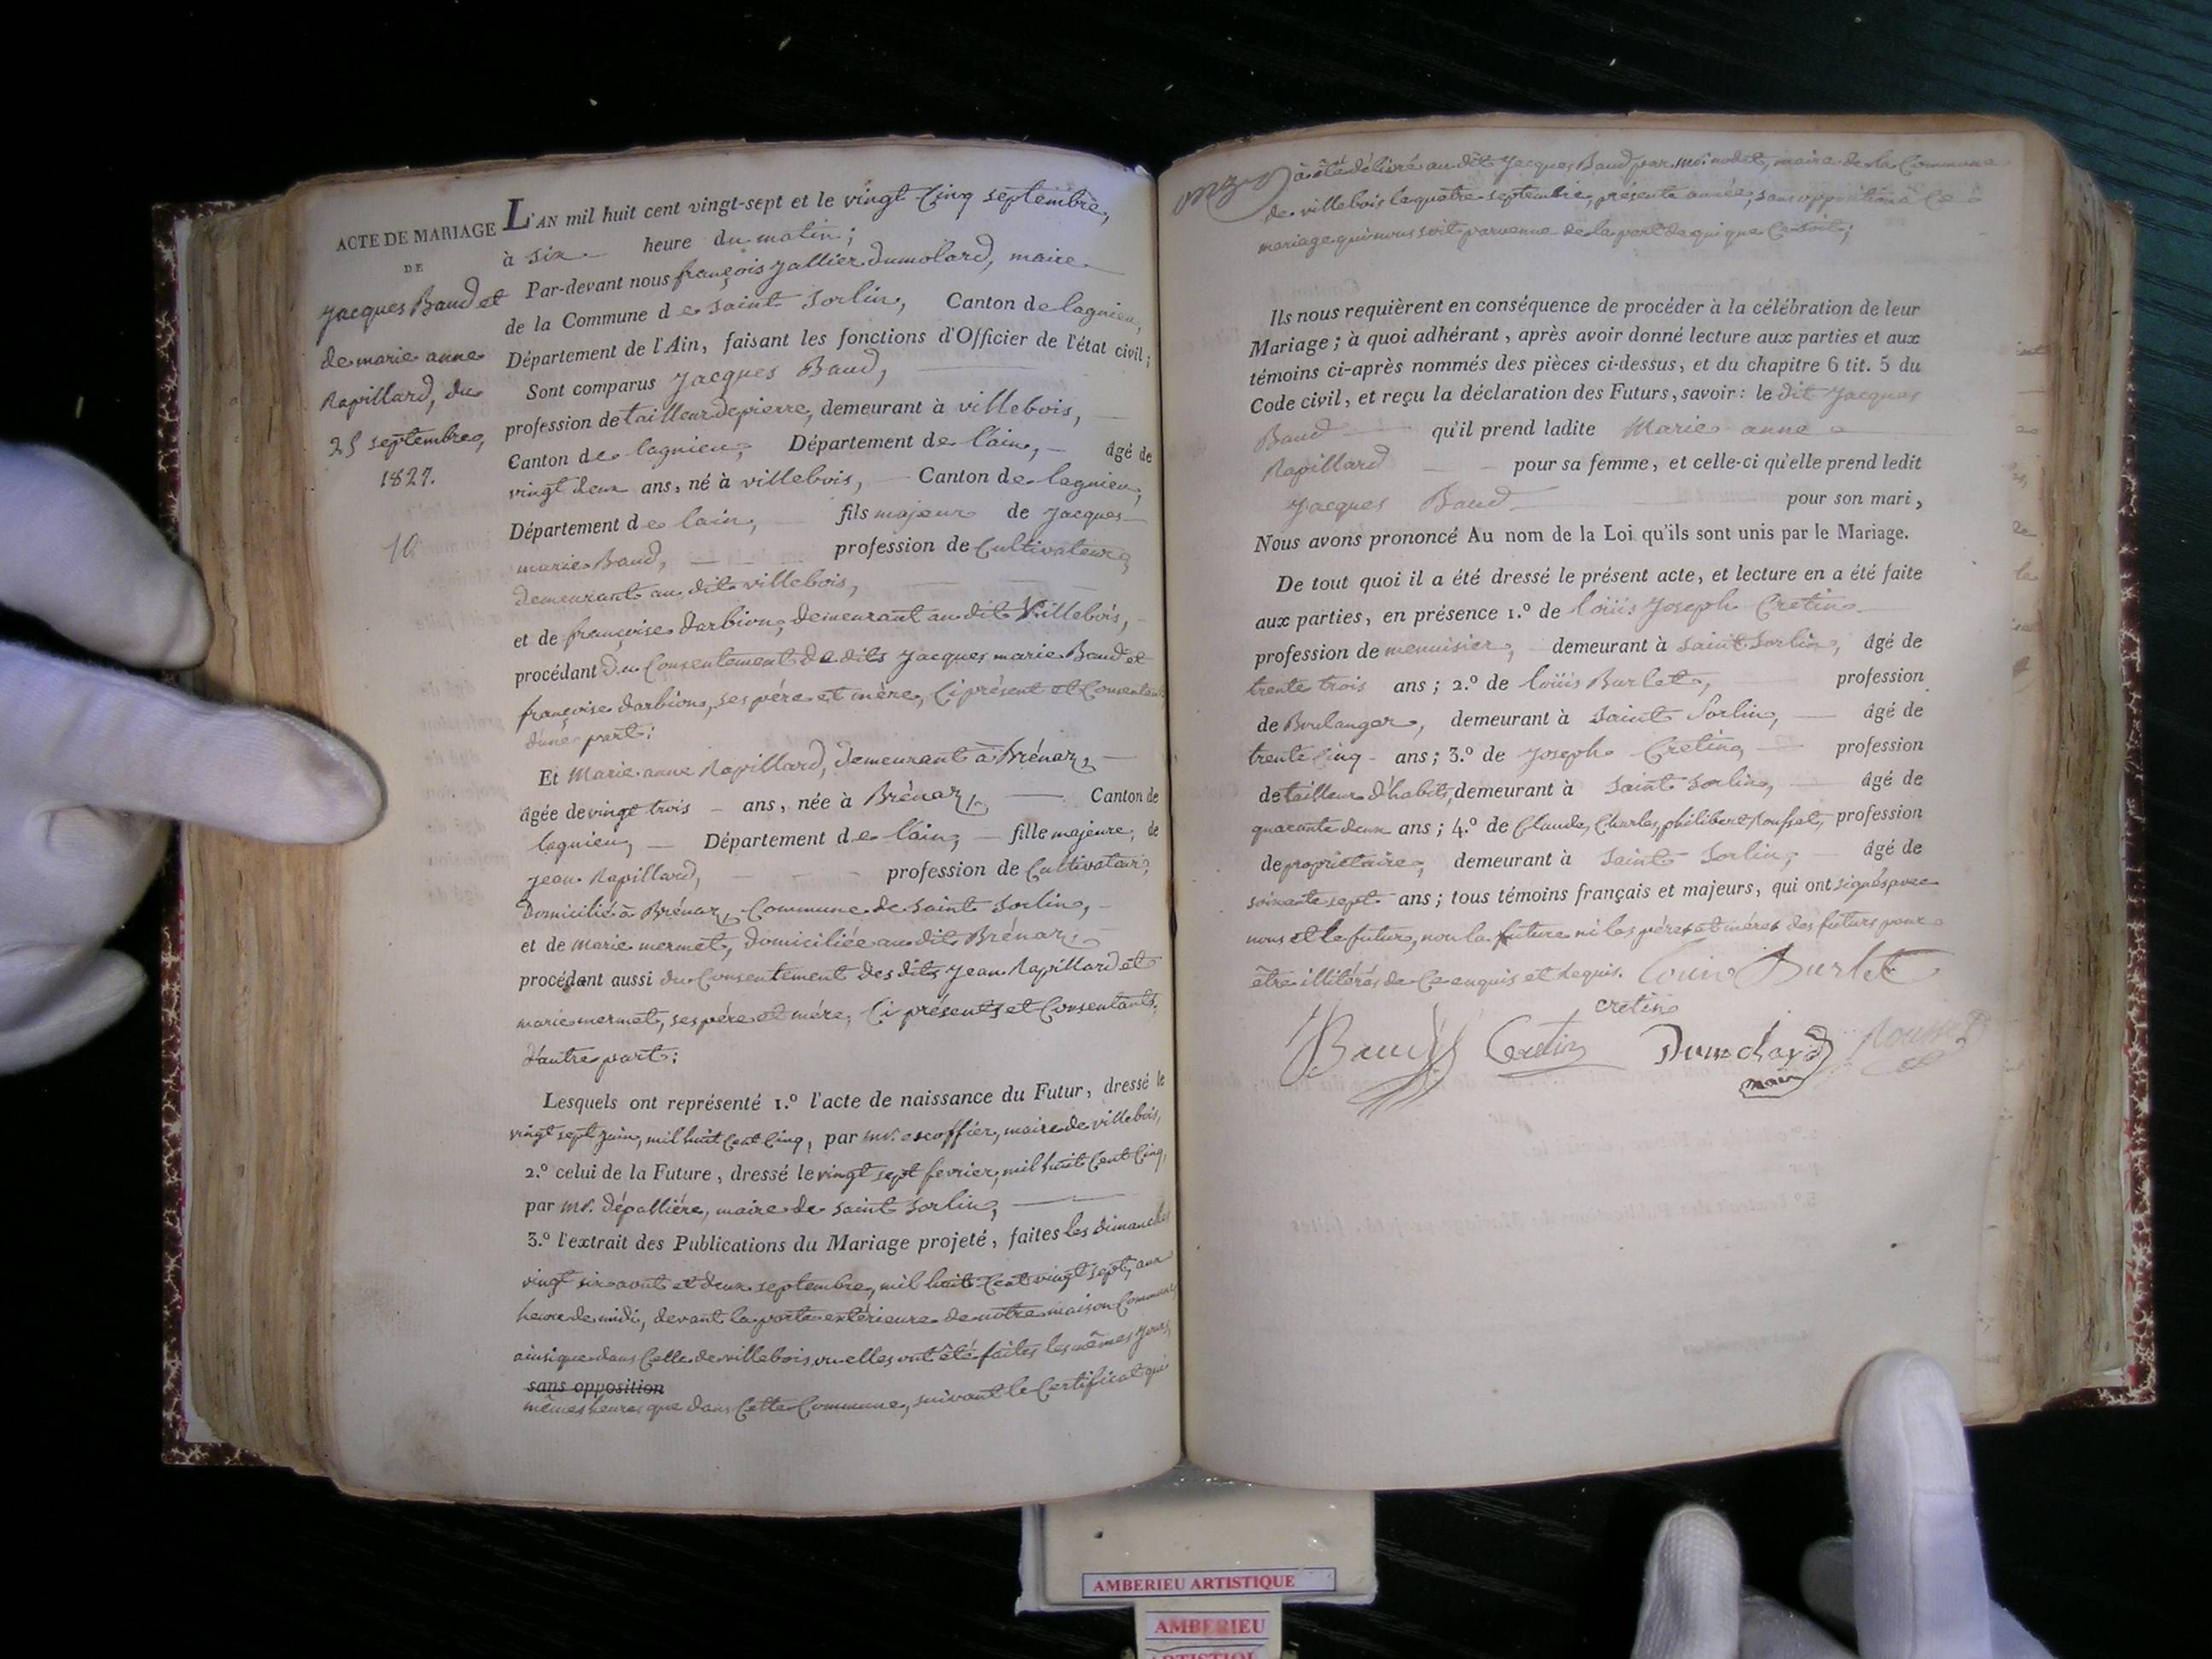 ACTE DE MARIAGE
DE
Jacques Baud et
de marie anne
Rapillard, du
25 septembre,
1827.
10.
L'AN mil huit cent vingt-sept et le vingt cinq septembre,
à six heure du matin;
Par-devant nous françois Jallier dumolard, maire
de la Commune de saint Sorlin, Canton de lagnieu,
Département de l'Ain, faisant les fonctions d'Officier de l'état civil;
Sont comparus Jacques Baud,
profession de tailleur de pierre, demeurant à villebois,
Canton de lagnieu, Département de l'ain, âgé de
vingt deux ans, né à villebois, Canton de lagnieu,
Département de lain, fils majeur de Jacques
marie Baud, profession de Cultivateur,
demeurant au dit villebois,
et de françoise darbion, demeurant au dit Villebois,
procédant du Consentement de dits Jacques marie Baud et
françoise darbion, ses pére et mère, Ci présent et Consentant
d'une part;
Et Marie anne Rapillard, demeurant à Brénaz,
âgée de vingt trois ans, née à Brénaz, Canton de
lagnieu, Département de l'ain, fille majeure, de
Jean Rapillard, profession de Cultivateur,
domicilié à Brénaz, Commune de Saint Sorlin,
et de Marie mermet, domiciliée au dit Brénaz,
procédant aussi du Consentement des dits Jean Rapillard et
marie mermet, ses pére et mére, Ci présents et Consentants,
d'autre part;
Lesquels ont représenté 1.º l'acte de naissance du Futur, dressé le
vingt sept juin, mil huit Cent Cinq, par mr. escoffier, maire de villebois,
2.º celui de la Future, dressé le vingt sept fevrier, mil huit Cent Cinq,
par mr. dépalliére, maire de saint Sorlin,
3.º l'extrait des Publications du Mariage projeté, faites les dimanches
vingt six aout et deux septembre, mil huit Cent vingt sept, aux
heure de midi, devant la porte extérieure de notre maison Commune
ainsi que dans Celle de villebois, ou elles ont été faites les mêmes jours,
sans opposition
mêmes heures que dans Cette Commune, suivant le Certificat qui
à été délivré au dit Jacques Baud par moi nodet, maire de la Commune
de villebois le quatre septembre, présente année, sans opposition à Ce
mariage qui nous soit parvenue de la part de qui que Ce soit;
Ils nous requièrent en conséquence de procéder à la célébration de leur
Mariage; à quoi adhérant, après avoir donné lecture aux parties et aux
témoins ci-après nommés des pièces ci-dessus, et du chapitre 6 tit. 5 du
Code civil, et reçu la déclaration des Futurs, savoir: le dit Jacques
Baud qu'il prend ladite Marie anne
Rapillard pour sa femme, et celle-ci qu'elle prend ledit
Jacques Baud pour son mari,
Nous avons prononcé Au nom de la Loi qu'ils sont unis par le Mariage.
De tout quoi il a été dressé le présent acte, et lecture en a été faite
aux parties, en présence 1.º de loüis Joseph Cretin
profession de menuisier, demeurant à saint Sorlin, âgé de
trente trois ans; 2.º de loüis Burlet, profession
de Boulanger, demeurant à saint Sorlin, âgé de
trente Cinq ans; 3.º de Joseph Cretin, profession
de tailleur d'habits, demeurant à Saint Sorlin, âgé de
quarante deux ans; 4.º de Claude, Charles, philibert Rousset, profession
de propriétaire, demeurant à Saint Sorlin, âgé de
soixante sept ans; tous témoins français et majeurs, qui ont signés avec
nous et le futur, non la future ni les péres et méres des futurs pour
être illitérés de Ce enquis et Requis. Louis Burlet
cretin
Baud Cretin Dumolard Rousset
maire
AMBERIEU ARTISTIQUE
AMBERIEU
ARTISTIQUE